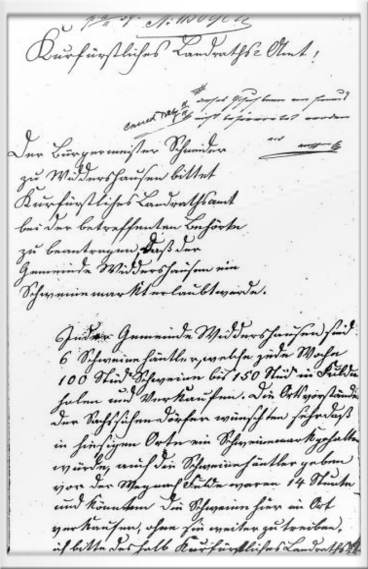 Kurfürstliches Landraths-Amt!
Der Bürgermeister Schneider
zu Widdershausen bittet
Kurfürstliches Landrathsamt
bei der betreffenten Behörte
zu beantragen, daß der
Gemeinde Widdershausen ein
Schweinemarkt erlaubt werde.
In der Gemeinde Widdershausen sind
6 Schweinehäntler, welche jede Woche
100 Stück Schweine bis 150 Stück in Fulda
holen und Verkaufen. Die Ortsvorstände
der Dörfer wünschten sehr daß
in hiesigem Orte ein Schweinemarkt gehalten
würde, auch die Schweinehäntler geben
vor der Weg nach Fulda waren 14 Stunte
und könnten die Schweine hier in Ort
verkaufen, ohne sie weiter zu treiben.
ich bitte deshalb Kurfürstliches Landraths